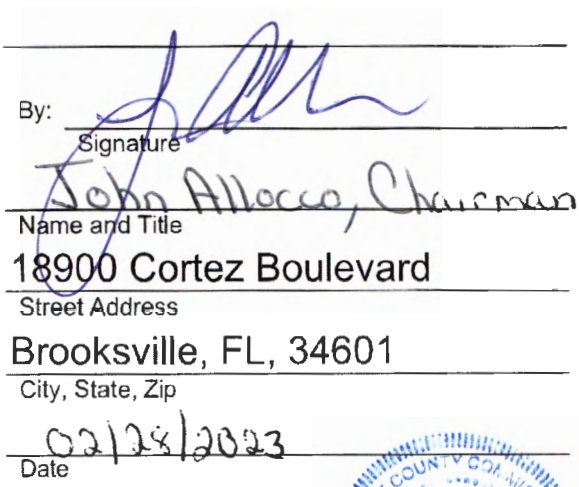 By:
Signature
John Allocco, Chairman
Name and Title
18900 Cortez Boulevard
Street Address
Brooksville, FL, 34601
City, State, Zip
02/28/2023
Date
COUNTY